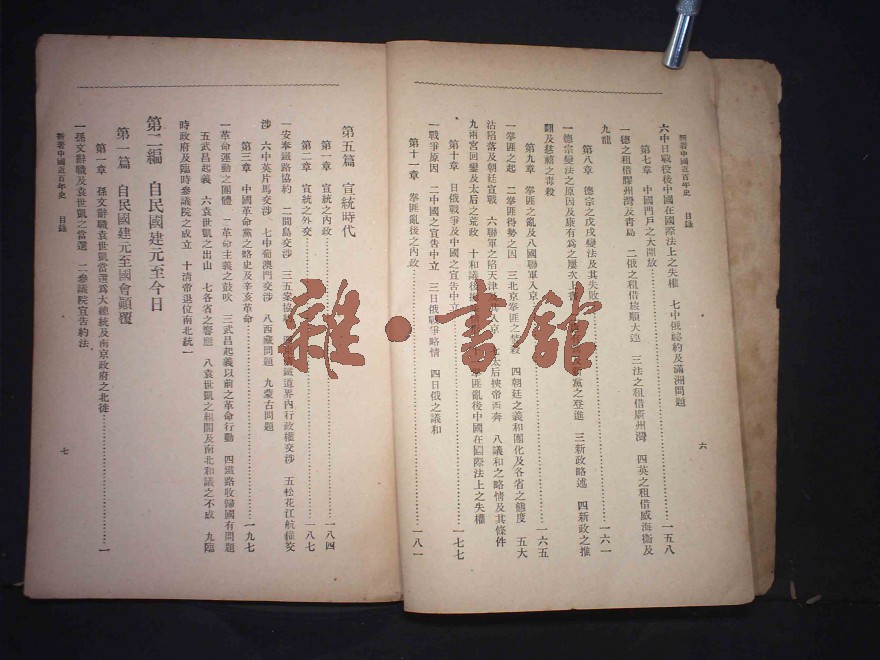 新著中國近百年史 目錄
六中日戰役後中國在國際法上之失權 七中俄密約及滿洲問題
第七章 中國門戶之大開放……一五八
一德之租借膠州灣及青島 二俄之租借旅順大連 三法之租借廣州灣 四英之租借威海衞及
九龍
第八章 德宗之戊戌變法及其失敗……一六一
一德宗變法之原因及康有爲之屢次上書 黨之登進 三新政略述 四新政之推
翻及慈禧之毒殺
第九章 拳匪之亂及八國聯軍入京……一六五
一拳匪之起 二拳匪得勢之因 三北京拳匪之 殺 四朝廷之義和團化及各省之態度 五大
沽陷落及朝廷宣戰 六聯軍之陷天津及其入京 七太后挾帝西奔 八議和之略情及其條件
九兩宮回鑾及太后之荒政 十和議後 拳匪亂後中國在國際法上之失權
第十章 日俄戰爭及中國之宣告中立……一七七
一戰爭原因 二中國之宣告中立 三日俄戰爭略情 四日俄之議和
第十一章 拳匪亂後之內政……一八一
六
第五篇 宣統時代
第一章 宣統之內政……一八四
第二章 宣統之外交……一八七
一安奉鐵路協約 二間島交涉 三五案協 鐵道界內行政權交涉 五松花江航權交
涉 六中英片馬交涉 七中葡澳門交涉 八西藏問題 九蒙古問題
第三章 中國革命黨之略史及辛亥革命……一九七
一革命運動之團體 二革命主義之鼓吹 三武昌起義以前之革命行動 四鐵路收歸國有問題
五武昌起義 六袁世凱之出山 七各省之響應 八袁世凱之組閣及南北和議之不成 九臨
時政府及臨時參議院之成立 十淸帝退位南北統一
第二編 自民國建元至今日
第一篇 自民國建元至國會顚覆
第一章 孫文辭職袁世凱當選爲大總統及南京政府之北徙……一
一孫文辭職及袁世凱之當選 二參議院宣告約法
新著中國近百年史 目錄
七
雜·書館